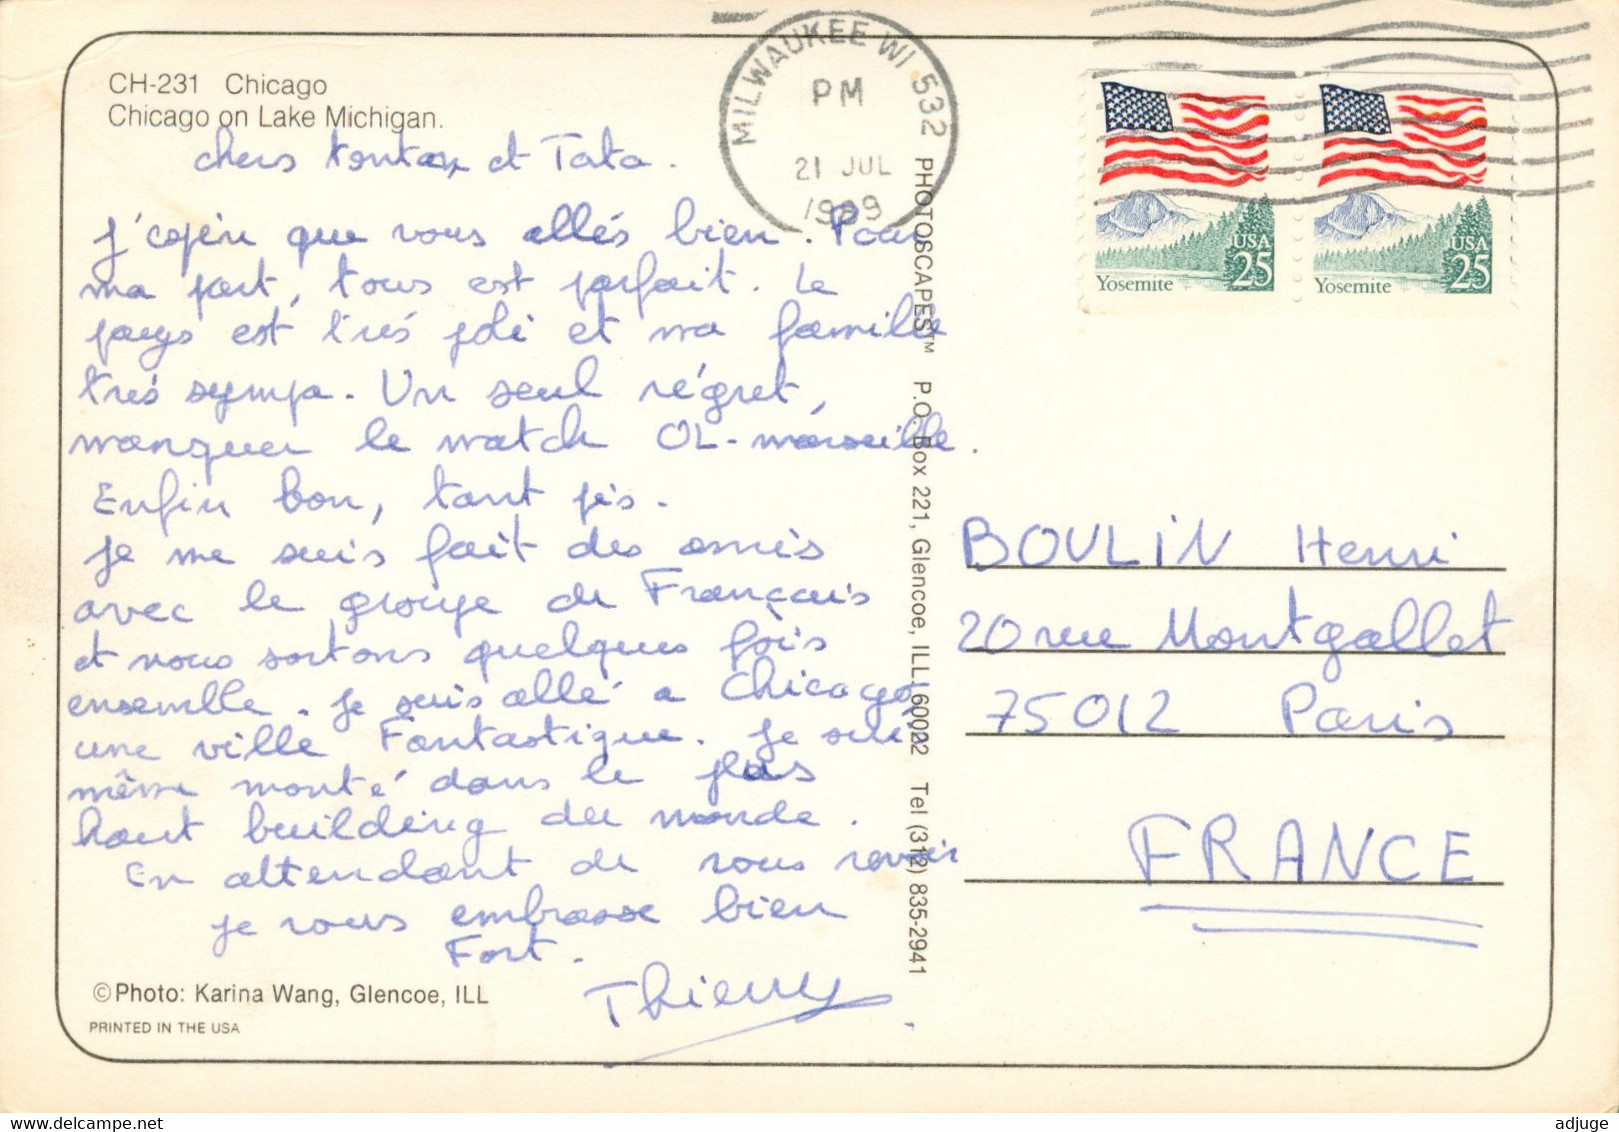 CH-231 Chicago
Chicago on Lake Michigan.
chers tonton et Tata.
J'espère que vous allés bien. Pour
ma part, tous est parfait. Le
pays est très joli et ma famille
très sympa. Un seul régret,
manquer le match OL-marseille.
Enfin bon, tant pis.
Je me suis fait des amis
avec le groupe de Français
et nous sortons quelques fois
ensemble. Je suis allé a Chicago,
une ville Fantastique. Je suis
même monté dans le plus
haut building du monde.
En attendant de vous revoir
je vous embrasse bien
Fort.
Thierry
©Photo: Karina Wang, Glencoe, ILL
PRINTED IN THE USA
MILWAUKEE WI 532
PM
21 JUL
1989
PHOTOSCAPES™ P.O. Box 221, Glencoe, ILL. 60022 Tel (312) 835-2941
USA
25
Yosemite
USA
25
Yosemite
BOULIN Henri
20 rue Montgallet
75012 Paris
FRANCE
www.delcampe.net
adjuge